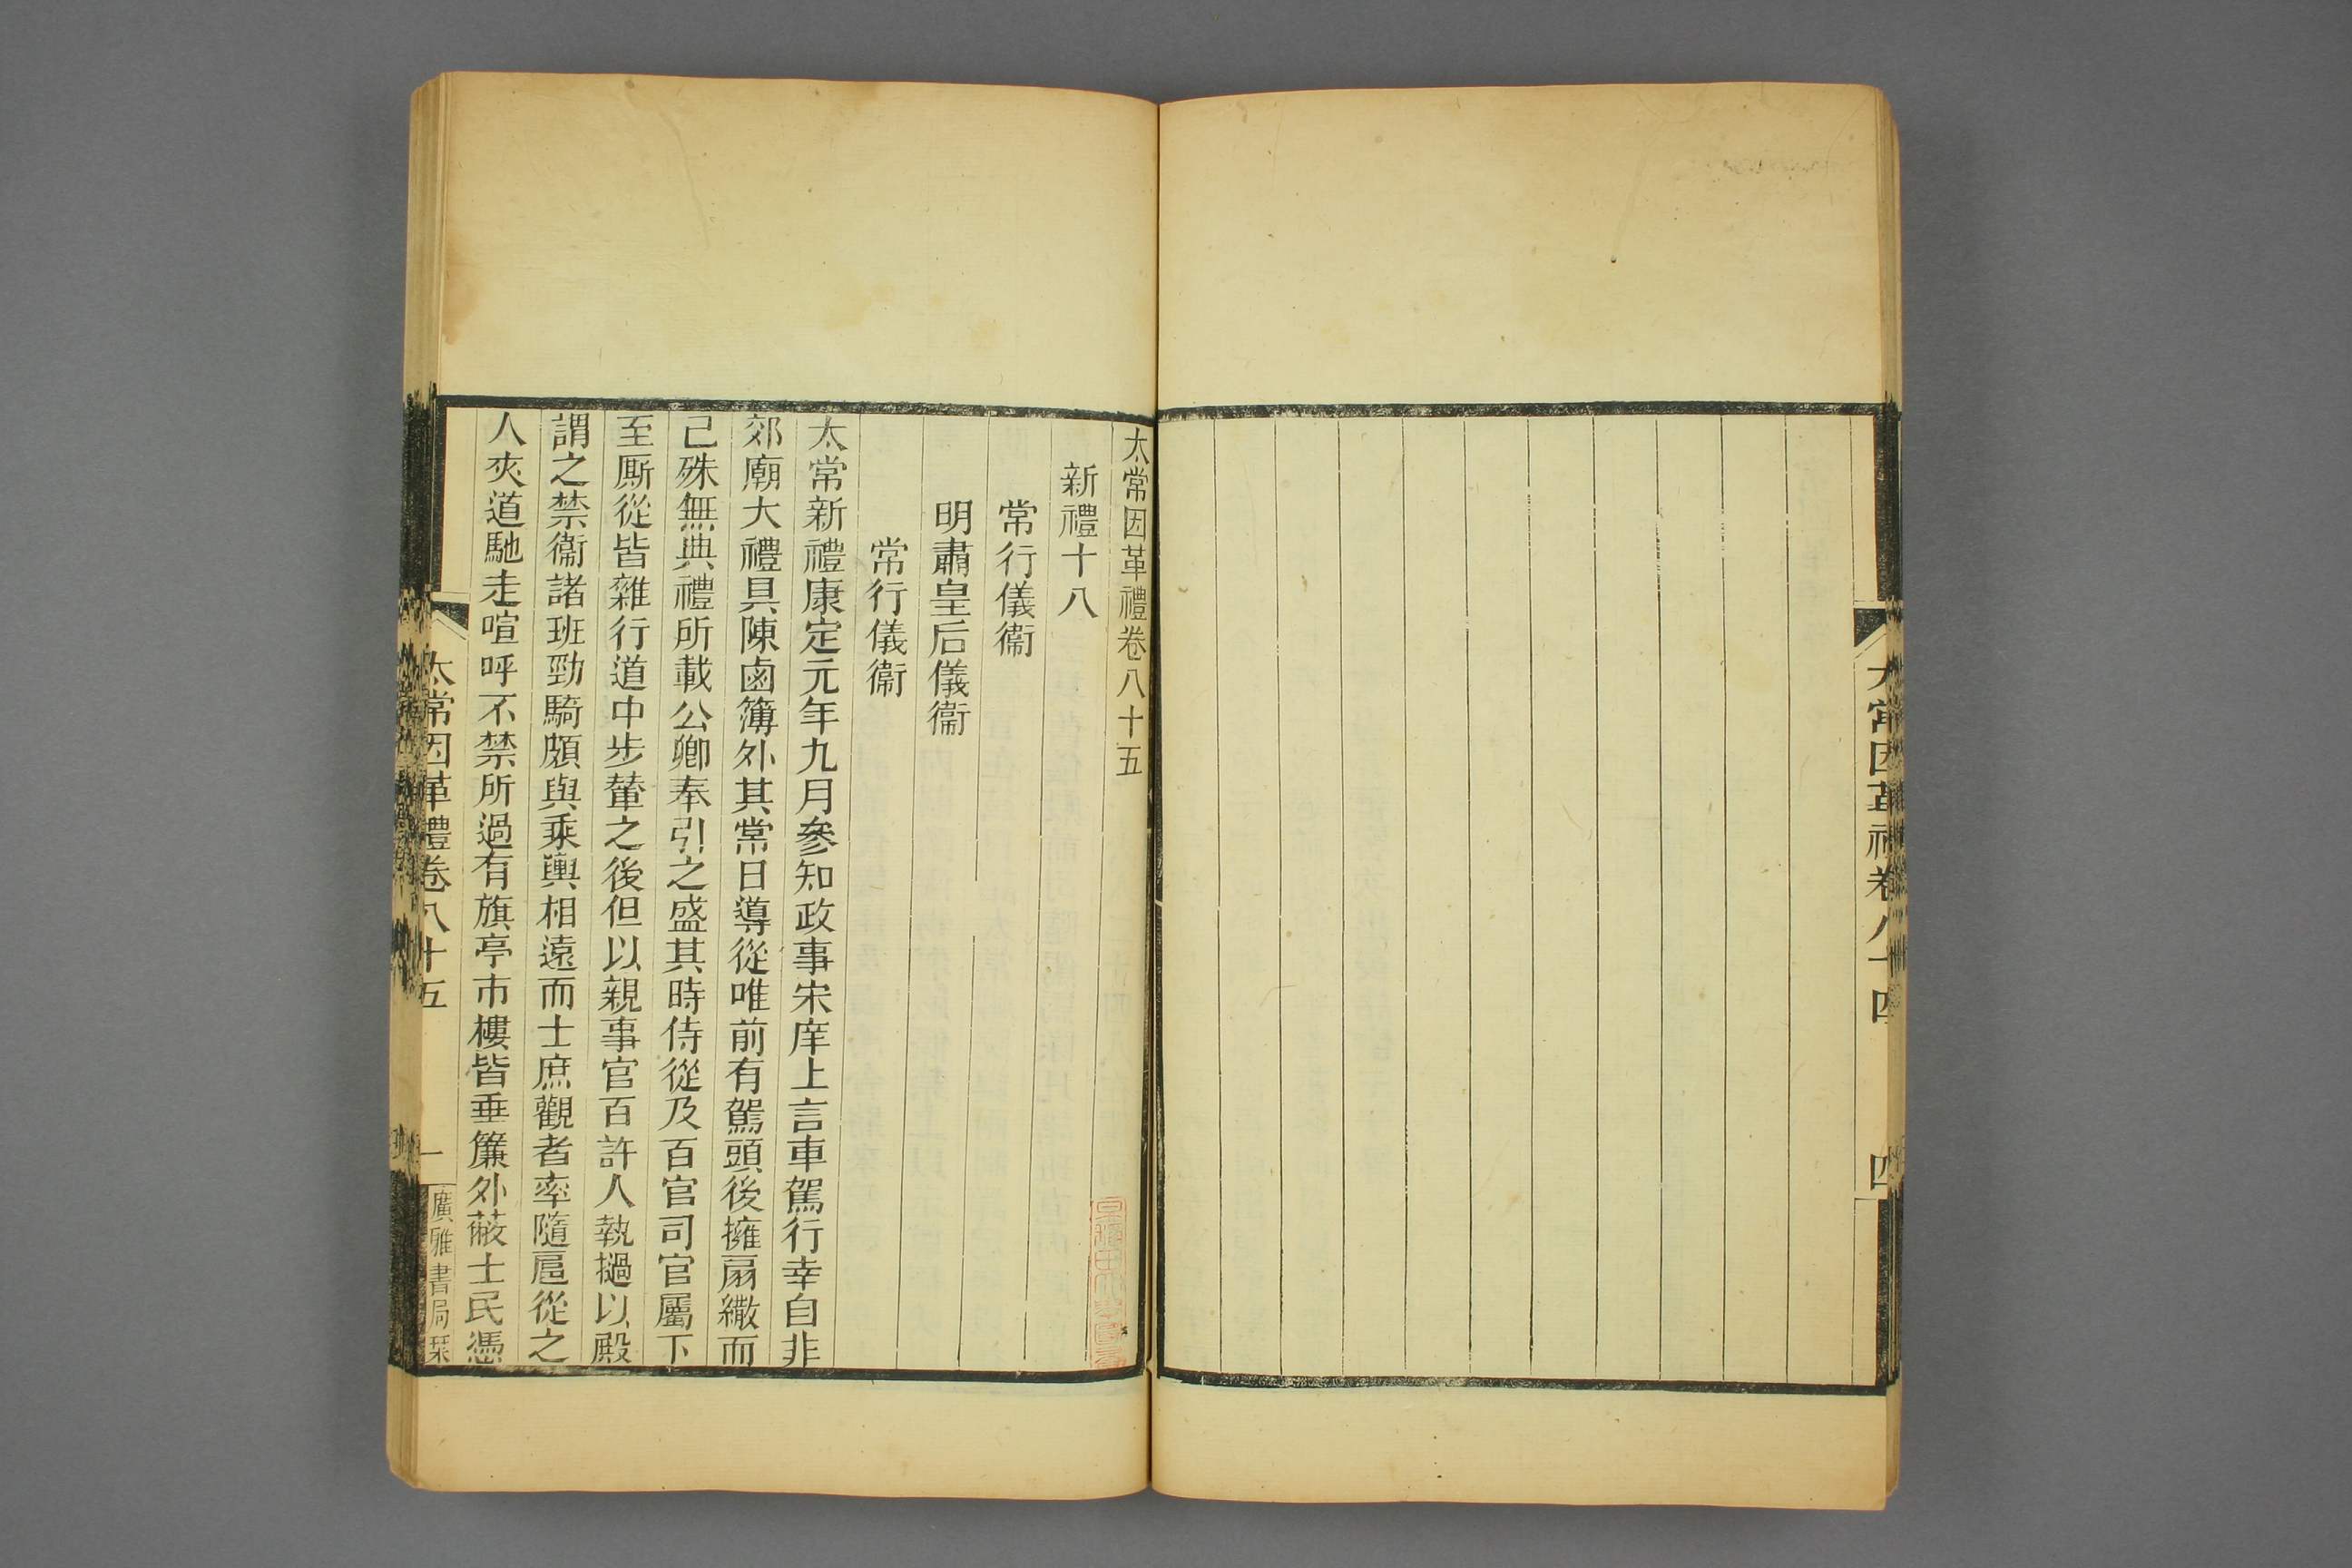 太常因革禮卷八十四
四
太常因革禮卷八十五
新禮十八
常行儀衞
明肅皇后儀衞
常行儀衞
太常新禮康定元年九月參知政事宋庠上言車駕行幸自非
郊廟大禮具陳鹵簿外其常日導從唯前有駕頭後擁扇繖而
己殊無典禮所載公卿奉引之盛其時侍從及百官司官屬下
至厮從皆雜行道中步輦之後但以親事官百許人執撾以殿
謂之禁衞諸班勁騎頗與乘輿相遠而士庶觀者率隨扈從之
人夾道馳走喧呼不禁所過有旗亭市樓皆垂簾外蔽士民憑
太常因革禮卷八十五
一
廣雅書局栞